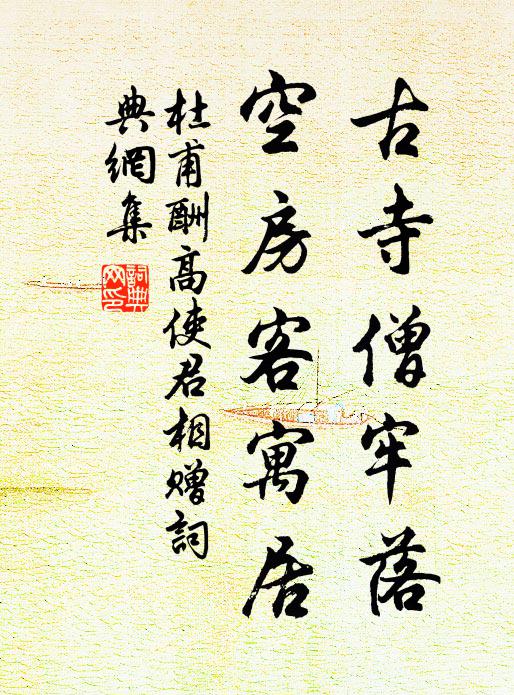 古寺僧牢落
空房客寓居
杜甫酬高使君相赠詞
典網集
詞典
网印